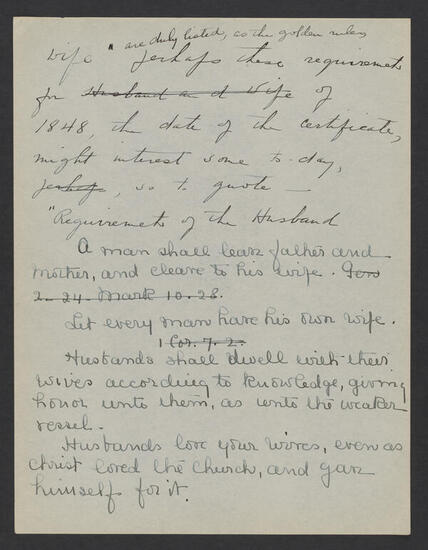 are duly listed, as the golden rules
wife" perhaps these requirements
for Husband and Wife of
1848, the date of the certificate,
might interest some to-day,
perhaps, so to quote —
"Requirements of the Husband
A man shall leave father and
mother, and cleave to his wife. Gen
2-24. Mark 10.28.
Let every man have his own wife.
1 Cor. 7.2.
Husbands shall dwell with their
wives according to knowledge, giving
honor unto them, as unto the weaker
vessel.
Husbands love your wives, even as
Christ loved the Church, and gave
himself for it.